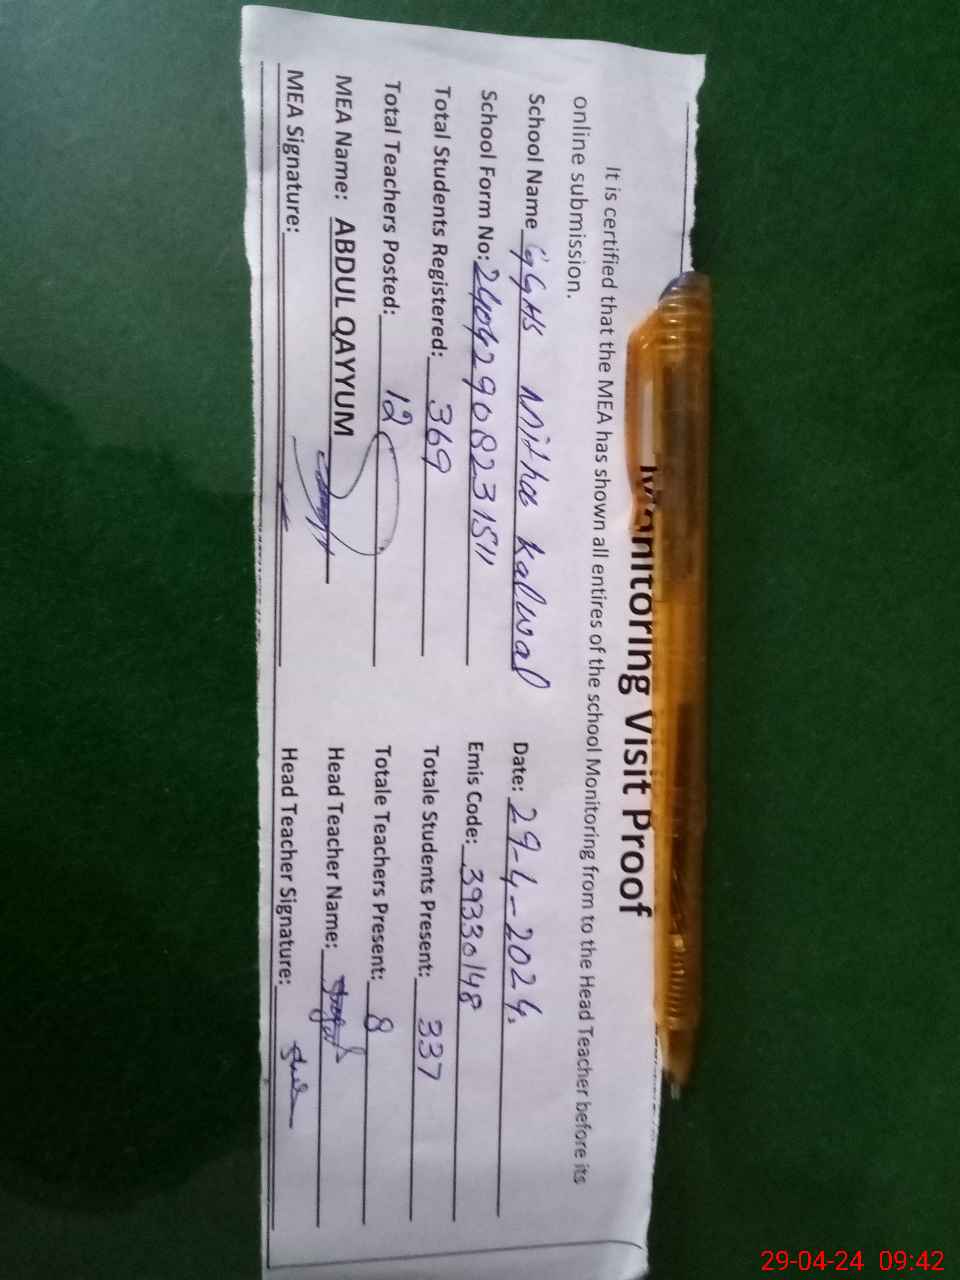 Monitoring Visit Proof
It is certified that the MEA has shown all entires of the school Monitoring from to the Head Teacher before its
online submission.
School Name GGHS Mitha Kalwal Date: 29-4-2024.
School Form No: 24042908231511 Emis Code: 39330148
Total Students Registered: 369 Totale Students Present: 337
Total Teachers Posted: 12 Totale Teachers Present: 8
MEA Name: ABDUL QAYYUM Head Teacher Name:
MEA Signature: Head Teacher Signature:
29-04-24 09:42